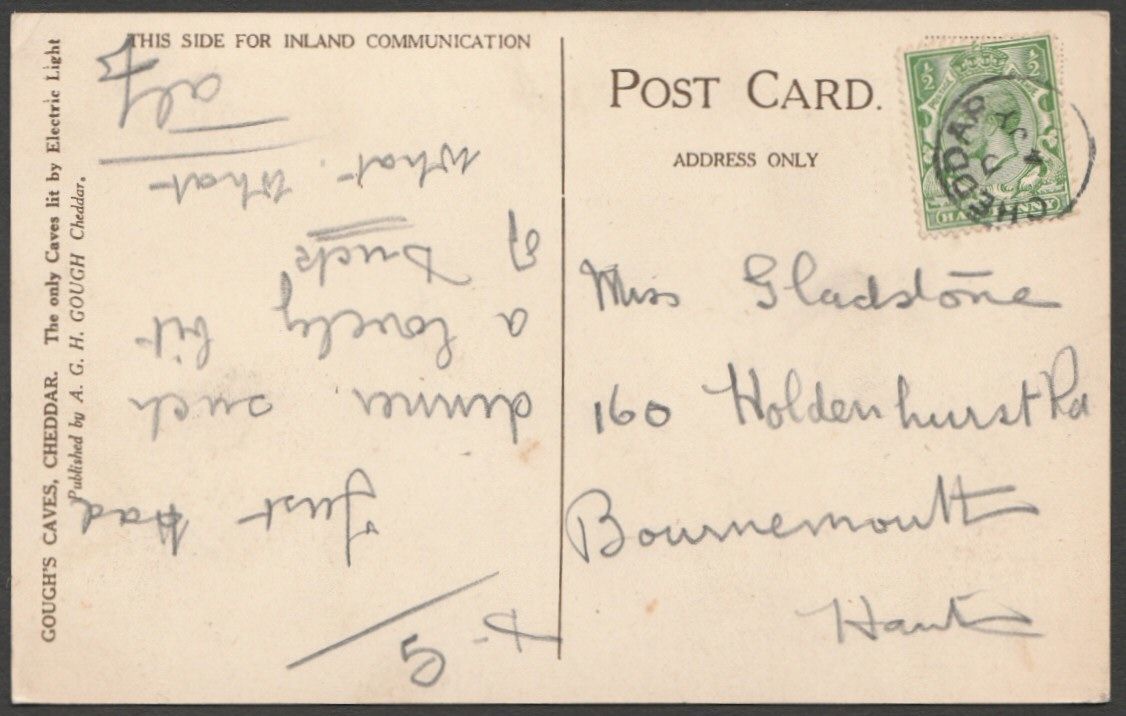 GOUGH'S CAVES, CHEDDAR. The only Caves lit by Electric Light
Published by A. G. H. GOUGH Cheddar.
THIS SIDE FOR INLAND COMMUNICATION
D. G
Just Had
dinner. such
a lovely bit
of Duck
What. What
alf
POST CARD.
ADDRESS ONLY
½ ½
HALFPENNY
CHEDDAR
4 JY
Miss Gladstone
160 Holdenhurst Rd
Bournemouth
Hants